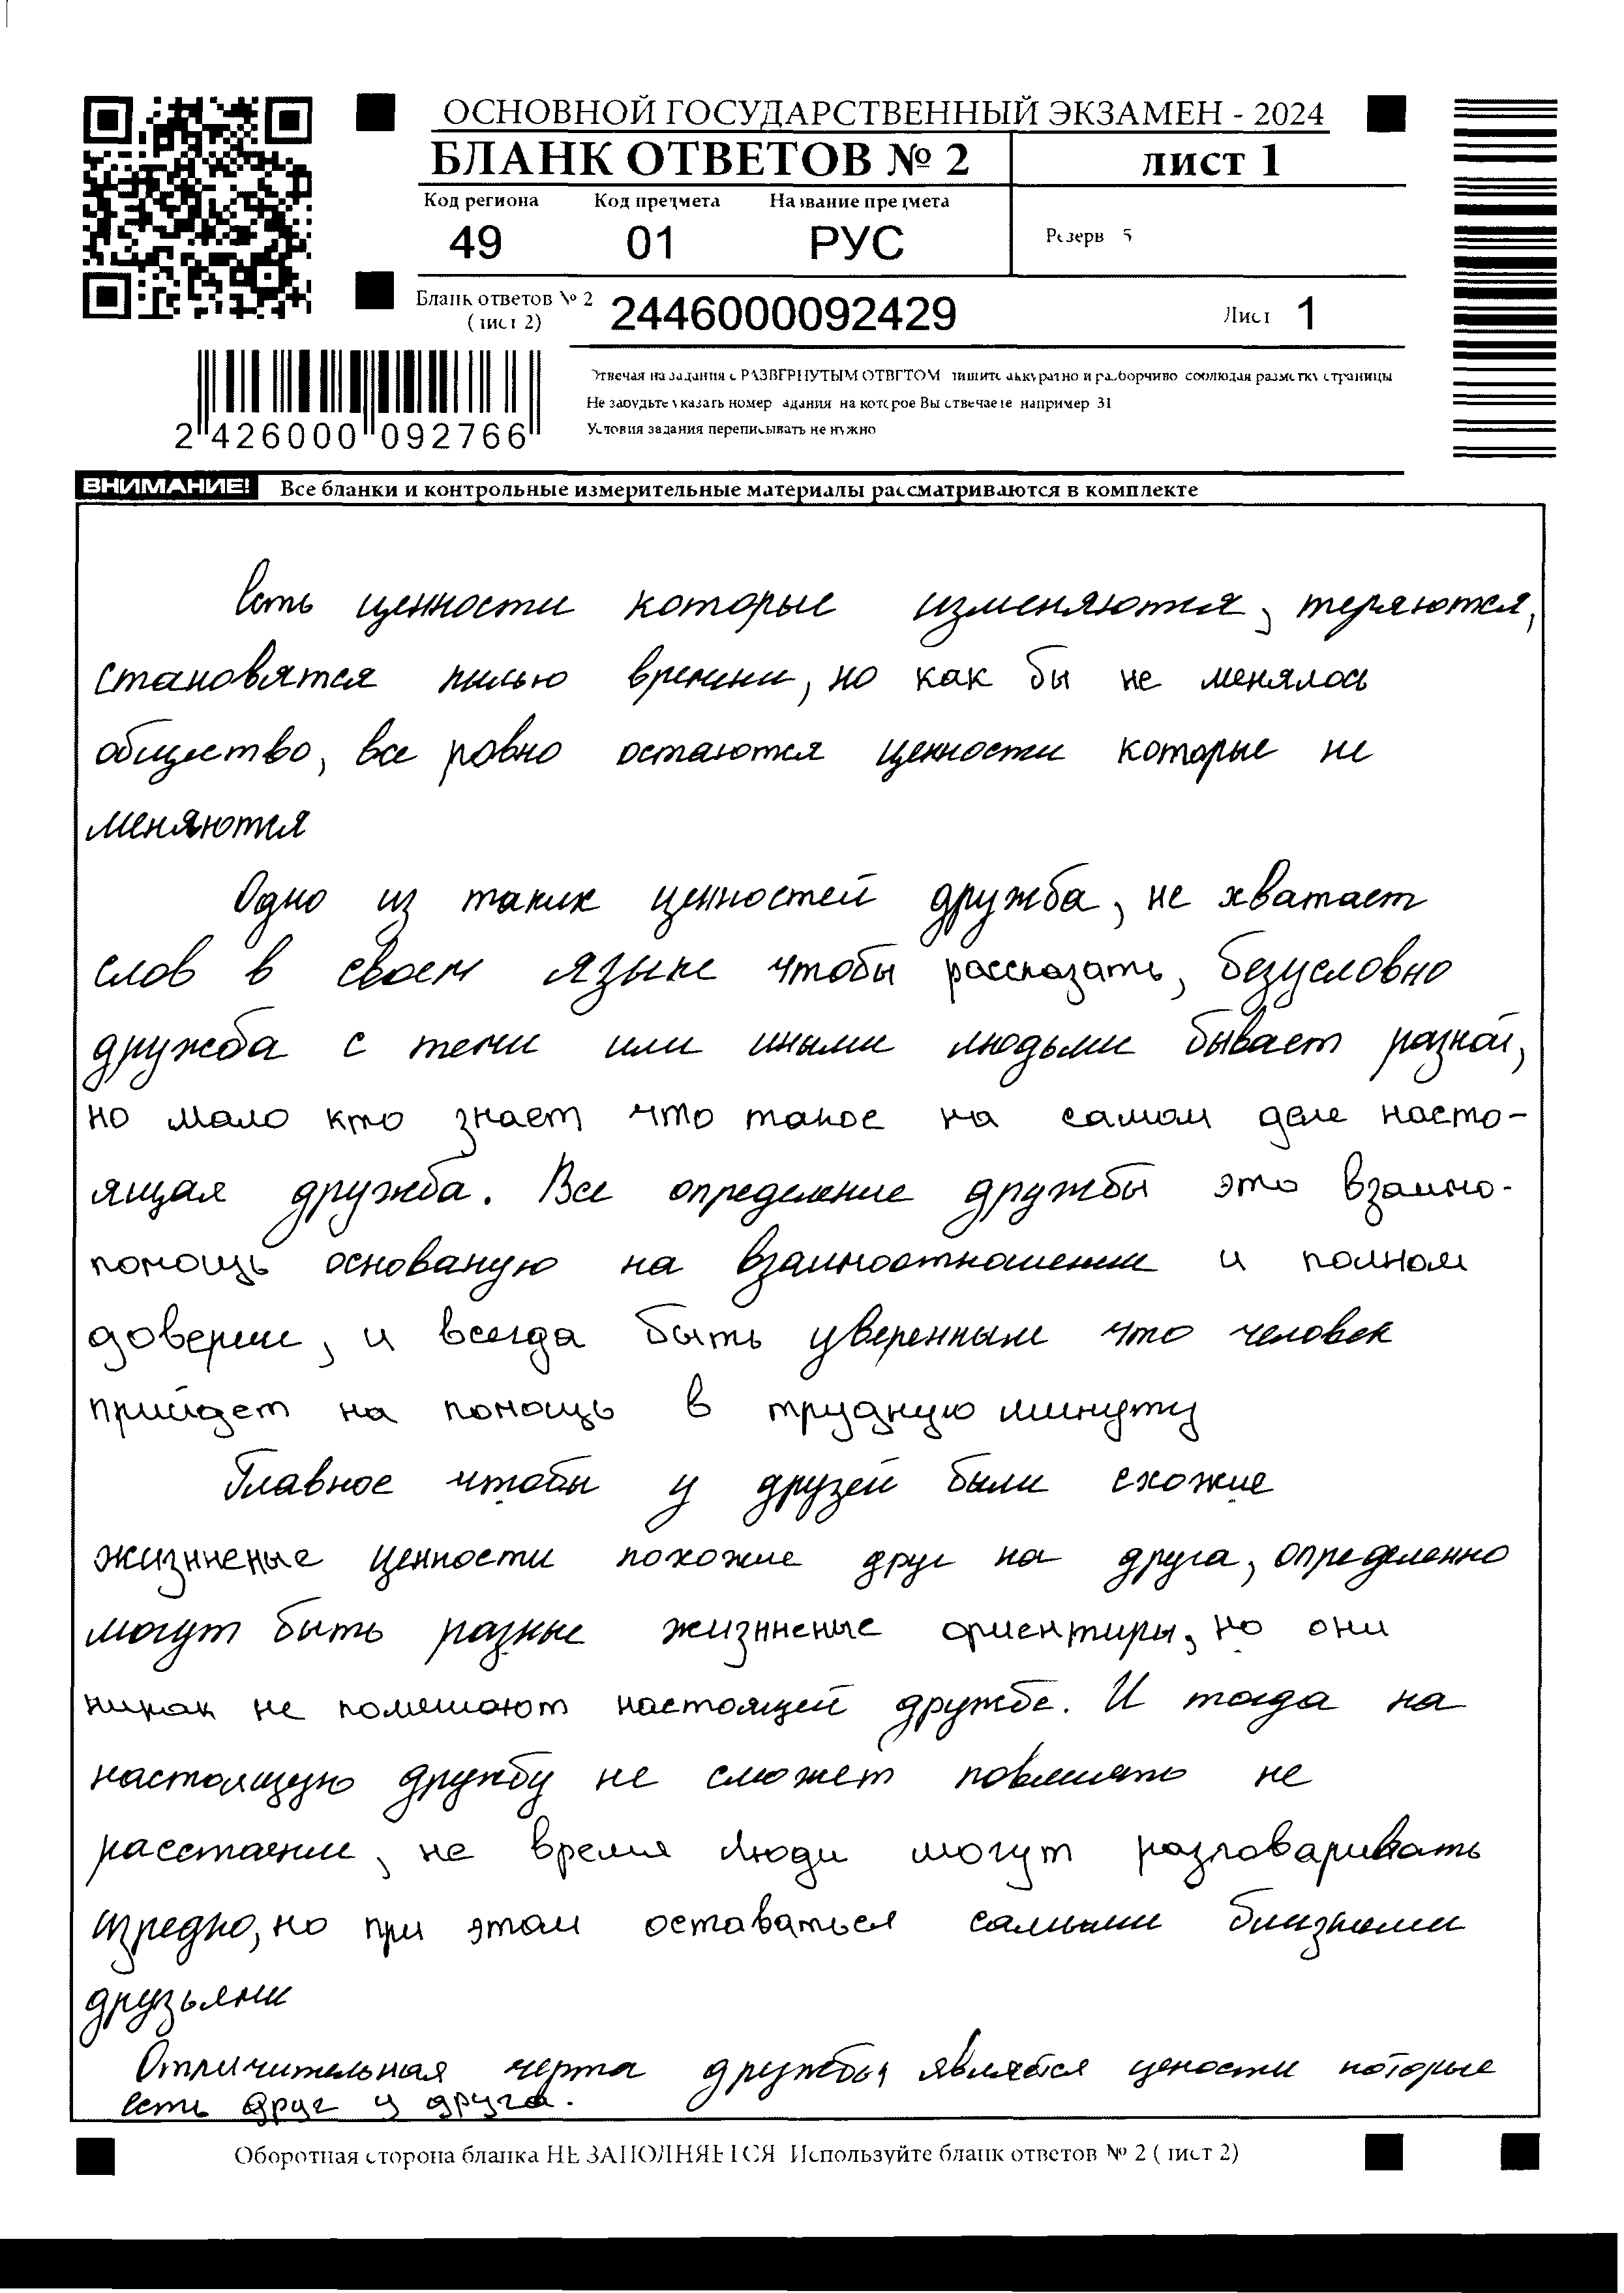 ОСНОВНОЙ ГОСУДАРСТВЕННЫЙ ЭКЗАМЕН - 2024
БЛАНК ОТВЕТОВ № 2
лист 1
Код региона Код предмета Название предмета
49 01 РУС
Резерв 5
Бланк ответов № 2
(лист 2)
2446000092429
Лист 1
2 426000 092766
Отвечая на задания с РАЗВЕРНУТЫМ ОТВЕТОМ пишите аккуратно и разборчиво соблюдая разметку страницы
Не забудьте указать номер задания на которое Вы отвечаете например 31
Условия задания переписывать не нужно
ВНИМАНИЕ! Все бланки и контрольные измерительные материалы рассматриваются в комплекте
Есть ценности которые изменяются, теряются,
становятся пылью времени, но как бы не менялось
общество, все ровно остаются ценности которые не
меняются
Одно из таких ценностей дружба, не хватает
слов в своем языке чтобы рассказать, безусловно
дружба с теми или иными людьми бывает разной,
но мало кто знает что такое на самом деле насто-
ящая дружба. Все определение дружбы это взаимо-
помощь основаную на взаимоотношении и полном
доверии, и всегда быть уверенным что человек
прийдет на помощь в трудную минуту
Главное чтобы у друзей были схожие
жизнненые ценности похожие друг на друга, определенно
могут быть разные жизнненые ориентиры, но они
никак не помешают настоящей дружбе. И тогда на
настоящую дружбу не сможет повлиять не
расстаении, не время люди могут разговаривать
изредко, но при этом оставаться самыми близкими
друзьями
Отличительная черта дружбы является цености которые
есть друг у друга.
Оборотная сторона бланка НЕ ЗАПОЛНЯЕТСЯ Используйте бланк ответов № 2 (лист 2)